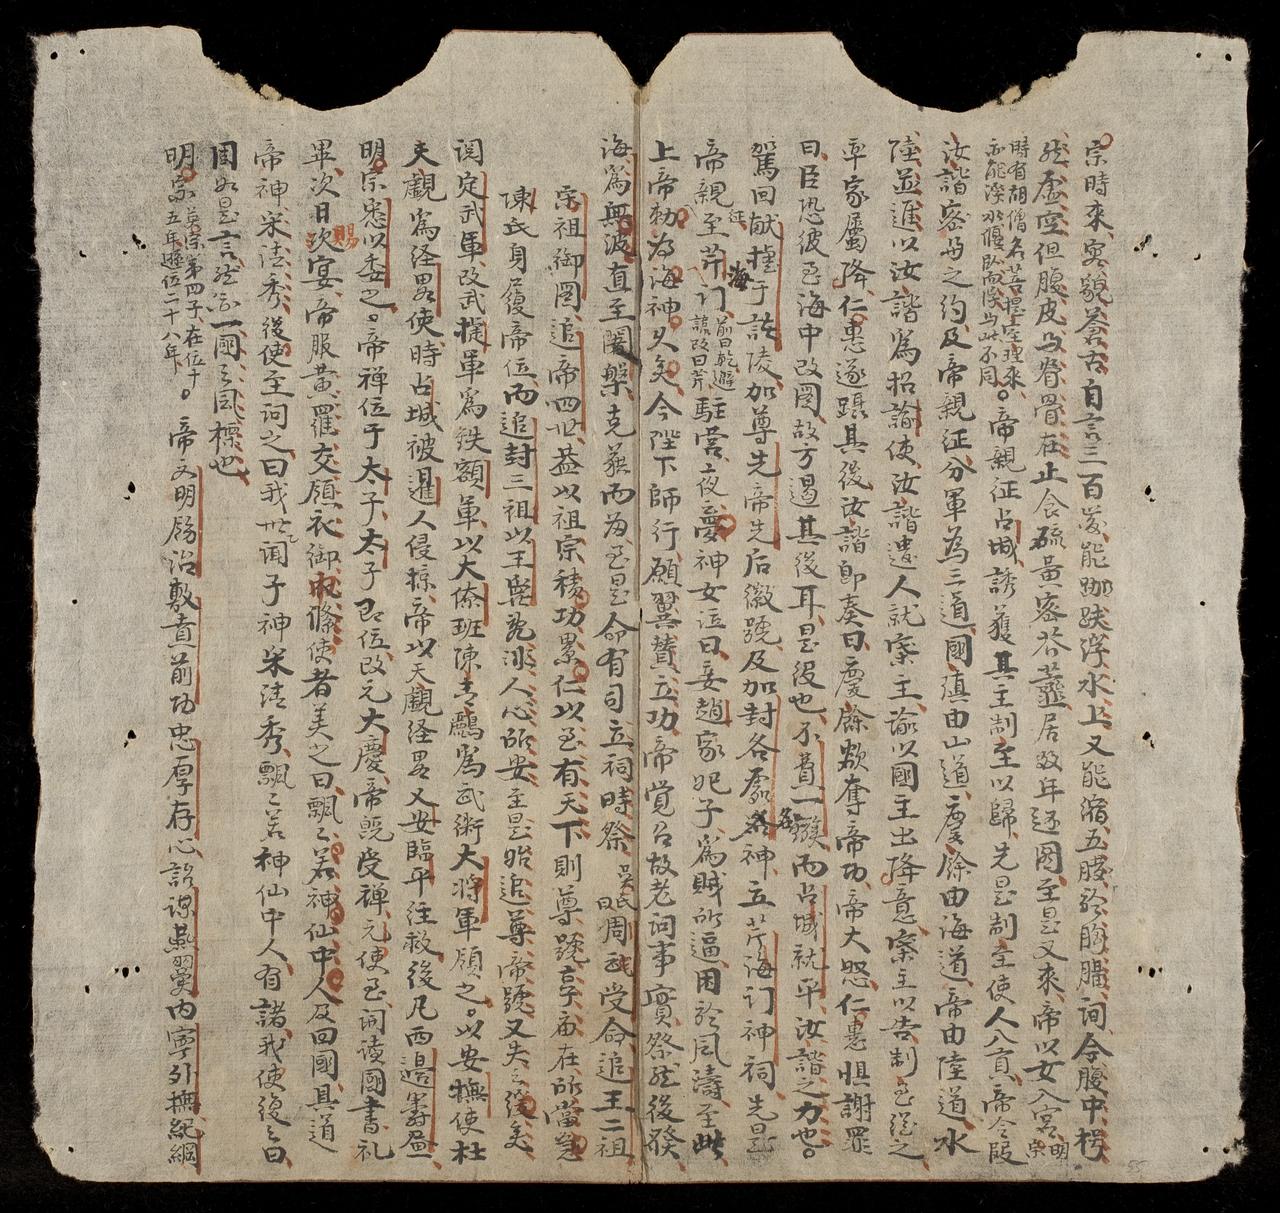 宗時來実貌蒼古自言三百歲能跏趺浮水上又能縮五臟於胸膈詞令腹中枵
然虛空但腹皮与脊骨在止食硫黄密荅虀居数年还國至是又來帝以女入宮明宗
時有胡僧名菩提室理來
亦能浮水偃卧而浮与此不同。帝親征占城誘獲其主制至以歸先是制至使人入貢帝令段
汝諧密与之約及帝親征分軍為三道國瑱由山道慶餘由海道帝由陸道水
陸並進以汝諧為招諭使汝諧遣人就寨主諭以國主出降意寨主以告制至從之
率家屬降仁惠遂躡其後汝諧即奏曰慶餘欲奪帝功帝大怒仁惠惧謝罪
曰臣恐彼至海中改圖故方遏其後耳是役也不費一鏃而占城就平汝諧之力也。
駕回献捷于諸陵加尊先帝先后徽號及加封各處名神立芹海门神祠先是
帝親征至芹海门前曰乾避
諱改曰芹駐营夜夢神女泣曰妾趙家妃子為賊所逼困於風濤至此
上帝勑为海神久矣今陛下師行願翼賛立功帝覚召故老詞事實祭然後發
海為無波直至闍槃克獲而为至是命有司立祠時祭吳氏曰周武受命追王二祖
宗祖御圖追帝四世蓋以祖宗積功累仁以至有天下則尊號享庙在所當是
陳氏身履帝位而追封三祖以王豈為浙人心所安主是始追尊帝號又失之後矣
閲定武軍改武捷軍為鉄額軍以大僚班陳青鸝為武術大将軍領之。以安撫使杜
天覷為経畧使時占城被暹人侵掠帝以天覷経畧又安臨平往救後凡西邉籌畫一
明宗悉以委之。帝禅位于太子太子即位改元大慶帝既受禅元使至詞读國書礼
畢次日賜宴帝服黄羅交領衣御巾絛使者美之曰飄々若神仙中人及回國具道
帝神采清秀後使至詞之曰我世聞子神采清秀飄々若神仙中人有諸我使復之曰
固如是言然亦一國之風標也
明宗英宗第四子在位十
五年遜位二十八年。帝文明粉治敷賁前功忠厚存心詒謀燕翼内寧外撫紀綱